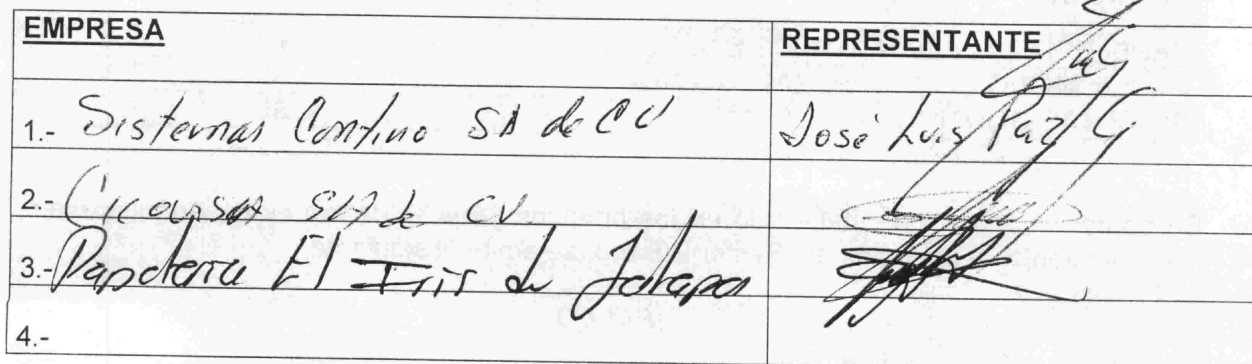 EMPRESA REPRESENTANTE
1.- Sistemas Contino SA de CV José Luis Paz G
2.- SA de CV
3.- Papeleria El Iris de Jalapa
4.-